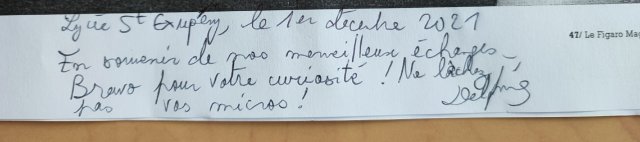 Lycée St Exupéry, le 1er décembre 2021
47/ Le Figaro Mag
En souvenir de nos merveilleux échanges_
Bravo pour votre curiosité ! Ne lâchez
pas vos micros !